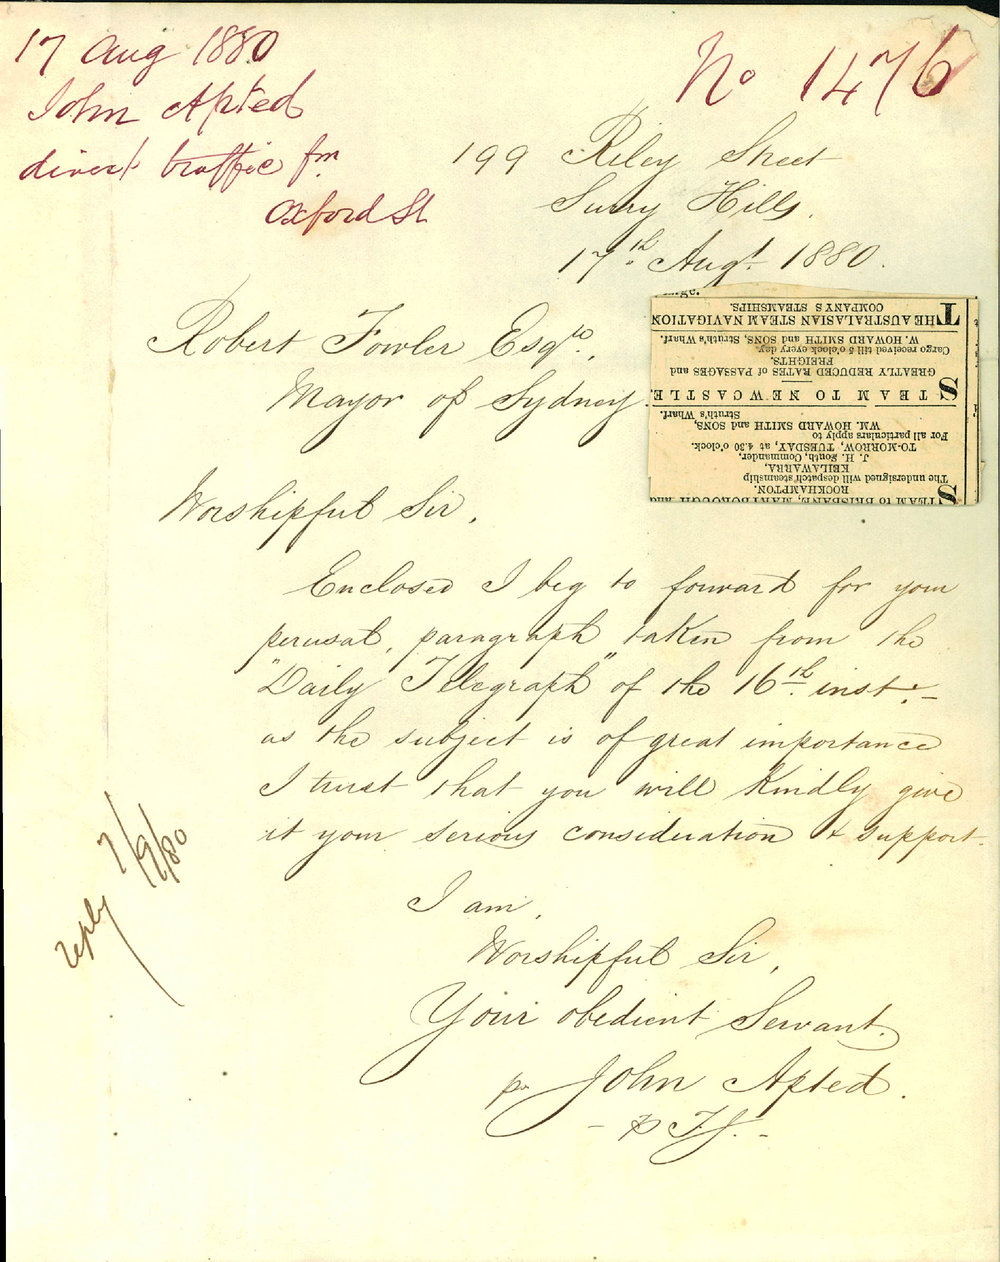 17 Aug 1880
John Apted
divert traffic fm
Oxford St
No 1476
199 Riley Street
Surry Hills.
17th Augt 1880.
Robert Fowler Esqre.
Mayor of Sydney.
Worshipful Sir,
Enclosed I beg to forward for your
perusal, paragraph taken from the
"Daily Telegraph" of the 16th inst:-
as the subject is of great importance
I trust that you will kindly give
it your serious consideration & support.
I am,
Worshipful Sir,
Your obedient Servant.
pr John Apted.
- p F J. -
reply 7/9/80
STEAM to BRISBANE, MARYBOROUGH and
ROCKHAMPTON.
The undersigned will despatch steamship
KEILAWARRA,
J. H. South, Commander,
TO-MORROW, TUESDAY, at 4.30 o'clock.
For all particulars apply to
WM. HOWARD SMITH and SONS,
Struth's Wharf.
STEAM TO NEWCASTLE.
GREATLY REDUCED RATES of PASSAGES and
FREIGHTS.
Cargo received till 5 o'clock every day.
W. HOWARD SMITH and SONS, Struth's Wharf.
THE AUSTRALASIAN STEAM NAVIGATION
COMPANY'S STEAMSHIPS.